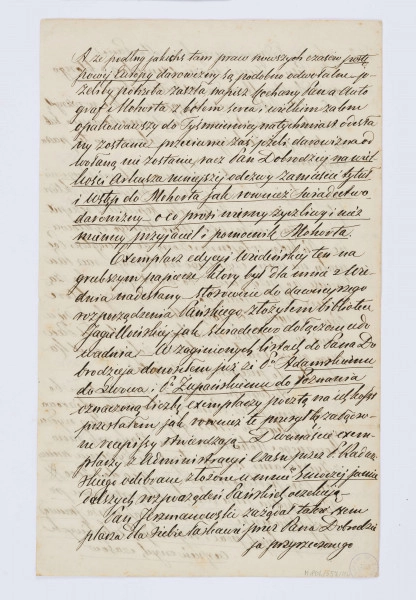 A że podług jakichś tam praw nowszych czasów postę
powej Europy darowizny są podobno odwołalne – je
żeliby potrzeba zaszła napisz kochany Panie Auto
graf Mohorta z bolem serca i wielkim żalem
opakowawszy do Tyśmienicy natychmiast odesła
ny zostanie przeciwnie zaś jeżeli darowizna od
wołaną nie zostanie, racz Pan Dobrodziej na wiel
kości Arkusza niniejszej odezwy zamieścić tytuł
i wstęp do Mohorta jak również świadectwo
darowizny o co prosi wierny życzliwy i
przyjaciel i pomocnik Mohorta.
Exemplarz edycyi Wiedeńskiej ten na
grubszym papierze który był dla mnie z Wie
dnia nadesłany stosownie do dawniejszego
rozporządzenia Pańskiego złożyłem bibliotece
Jagiellońskiej jak świadectwo dołączone udo
wadnia W zaginionych listach do Pana Do
brodzieja donosiłem już że Pu Adamskiemu
do Lwowa i Pu Żupańskiemu do Poznania
oznaczoną liczbę exemplarzy pocztą na ich koszt
przesłałem jak również te przesyłkę załączo
ne recepissy stwierdzają. Dwanaście exem
plarzy z Administracyi Czasu przez
odebrane złożone u mnie
dalszych rozporządzeń Pańskich oczekują
Pan Hrzmanowski zażądał także exem
plarza dla siebie łaskawie przez Pana Dobrodzie
ja przyrzeczonego